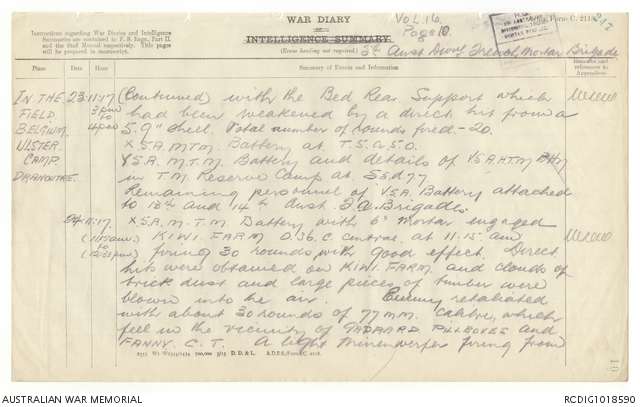 WAR DIARY
INTELLIGENCE SUMMARY.
(Erase heading not required.)
Vol. 16.
Page 10.
Army Form C. 2118.
217
Instructions regarding War Diaries and Intelligence
Summaries are contained in F. S. Regs., Part II.
and the Staff Manual respectively. Title pages
will be prepared in manuscript.
5th Aust. Divnl Trench Mortar Brigade
Place
Date
Hour
Summary of Events and Information
Remarks and
references to
Appendices
IN THE
FIELD
BELGIUM.
ULSTER
CAMP.
DRANOUTRE
23.11.17
3pm
to
4pm
(Continued) with the Bed Rear Support which
had been weakened by a direct hit from a
5.9" shell. Total number of rounds fired - 20.
X5A.M.T.M. Battery at T.5.a.5.0.
Y5A.M.T.M. Battery and details of V5AHTM Bty
in T.M. Reserve Camp at S5d77
Remaining personnel of V5A. Battery attached
to 13th and 14th Aust. F.A. Brigades.
24.11.17
X5A.M.T.M. Battery with 6" Mortar engaged
KIWI FARM O.36.C. central at 11.15 am
firing 30 rounds with good effect. Direct
hits were obtained on KIWI FARM and clouds of
brick dust and large pieces of timber were
blown into the air. Enemy retaliated
with about 30 rounds of 77 mm. calibre, which
fell in the vicinity of PILLBOXES and
FANNY. C.T. A light Minenwerfer firing from
D. D. & L. A.D.S.S./Forms/C. 2118.
AUSTRALIAN WAR MEMORIAL
RCDIG1018590